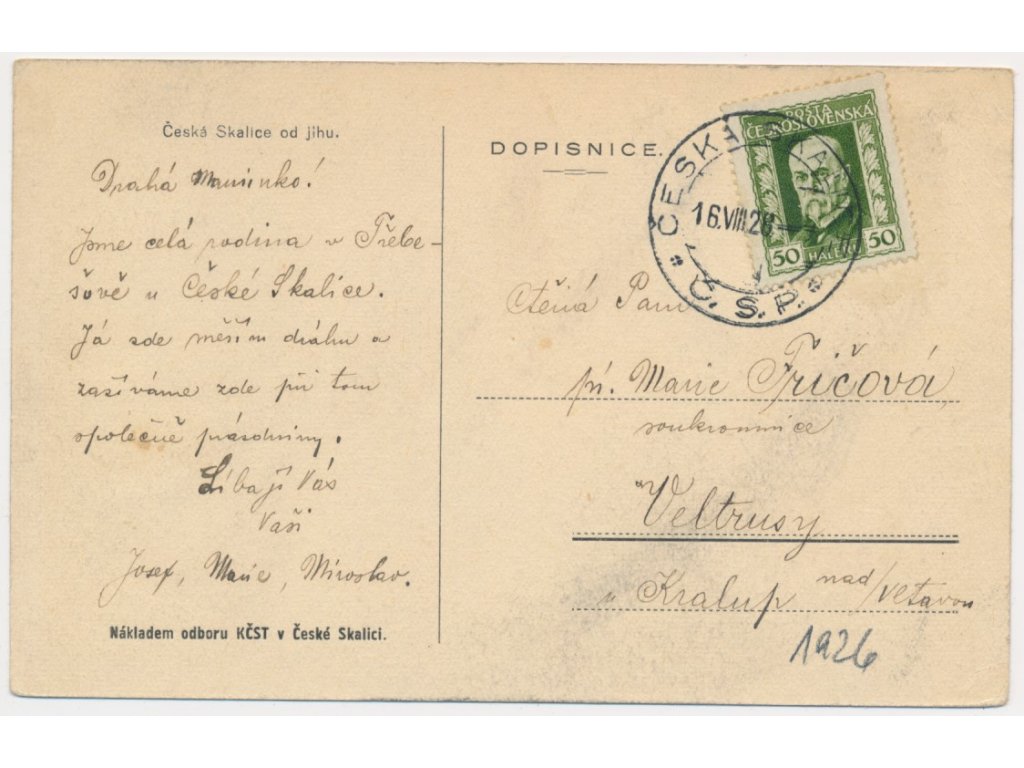 Česká Skalice od jihu.
Drahá Mařenko!
Jsme celá rodina v Třebe-
šově u České Skalice.
Já zde měřím dráhu a
zažíváme zde při tom
společně prázdniny.
Líbají Vás
Vaši
Josef, Marie, Miroslav.
Nákladem odboru KČST v České Skalici.
DOPISNICE.
POŠTA
ČESKOSLOVENSKÁ
50 HALÉŘŮ 50
ČESKÁ SKALICE
16.VIII.26
Č.S.P.
Ctěná Paní
pí. Marie Fričová,
soukromnice
Veltrusy
u Kralup nad/Vltavou
1926